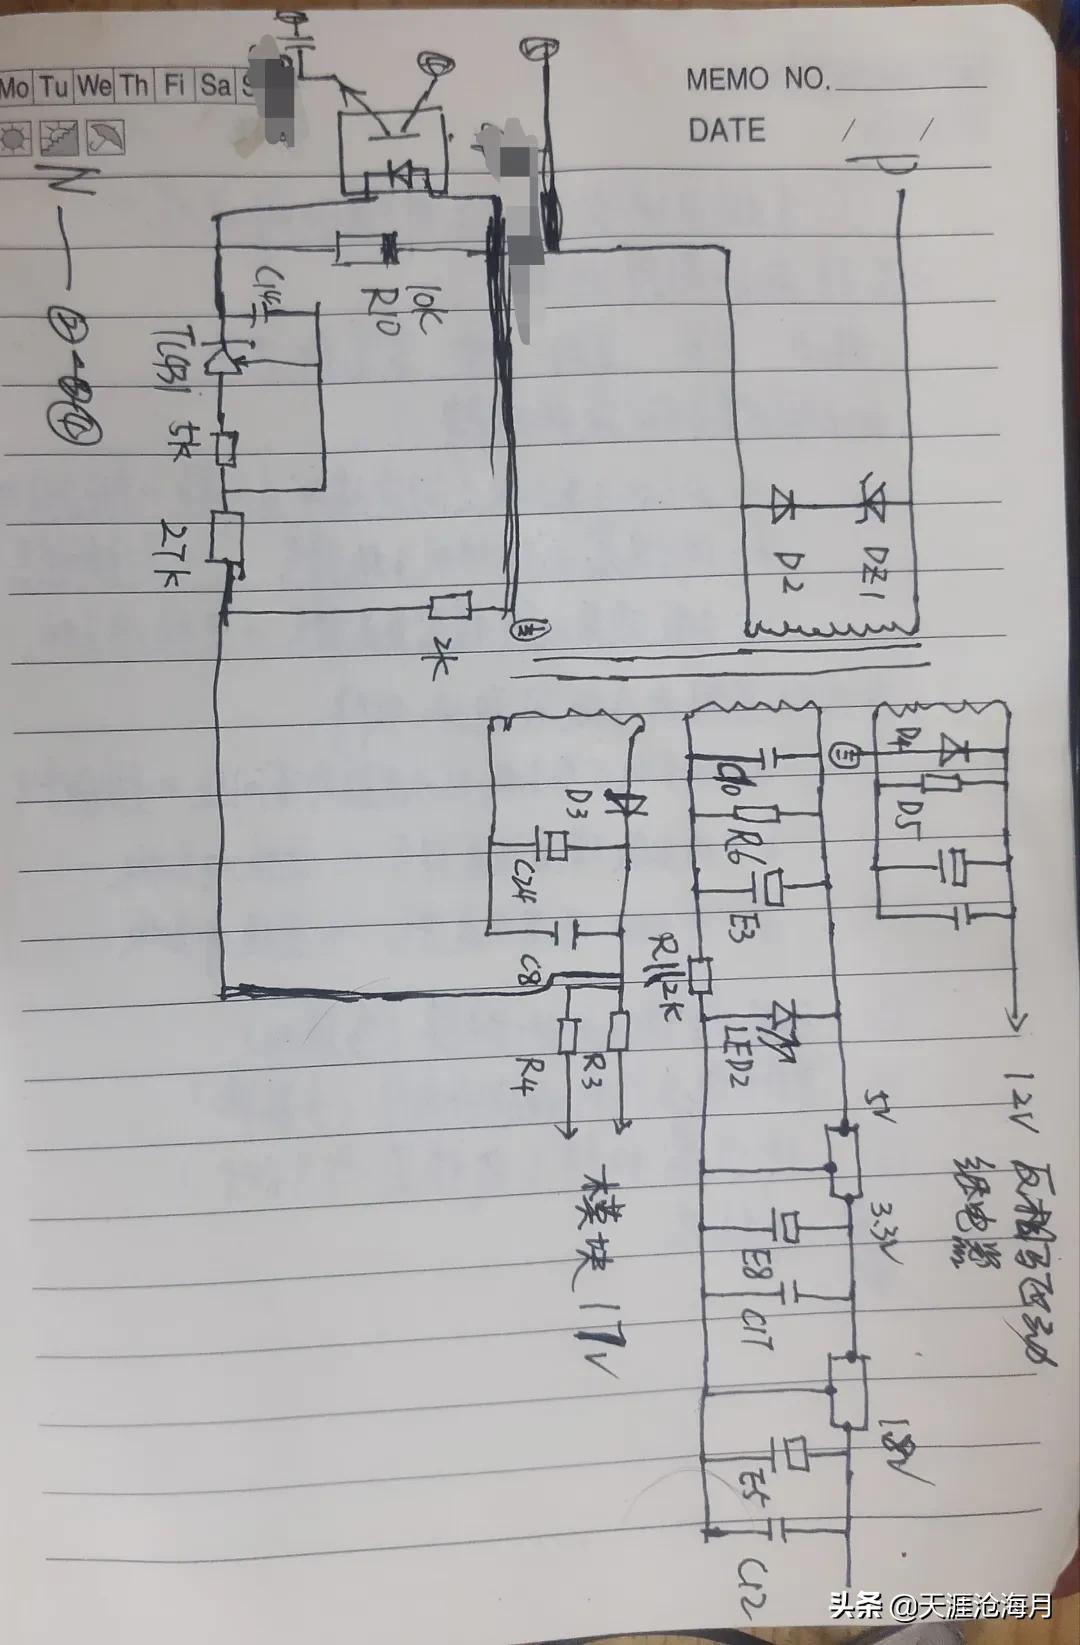 Mo Tu We Th Fi Sa S
MEMO NO.
DATE / /
P
N
10K
R10
C14
TL431
5K
27K
2K
DZ1
D2
D4
D5
D3
C24
C8
C10
R6
E3
R11
2K
LED2
R4
R3
模块17V
5V
3.3V
E8
C17
1.8V
E5
C12
12V
继电器
头条 @天涯沧海月